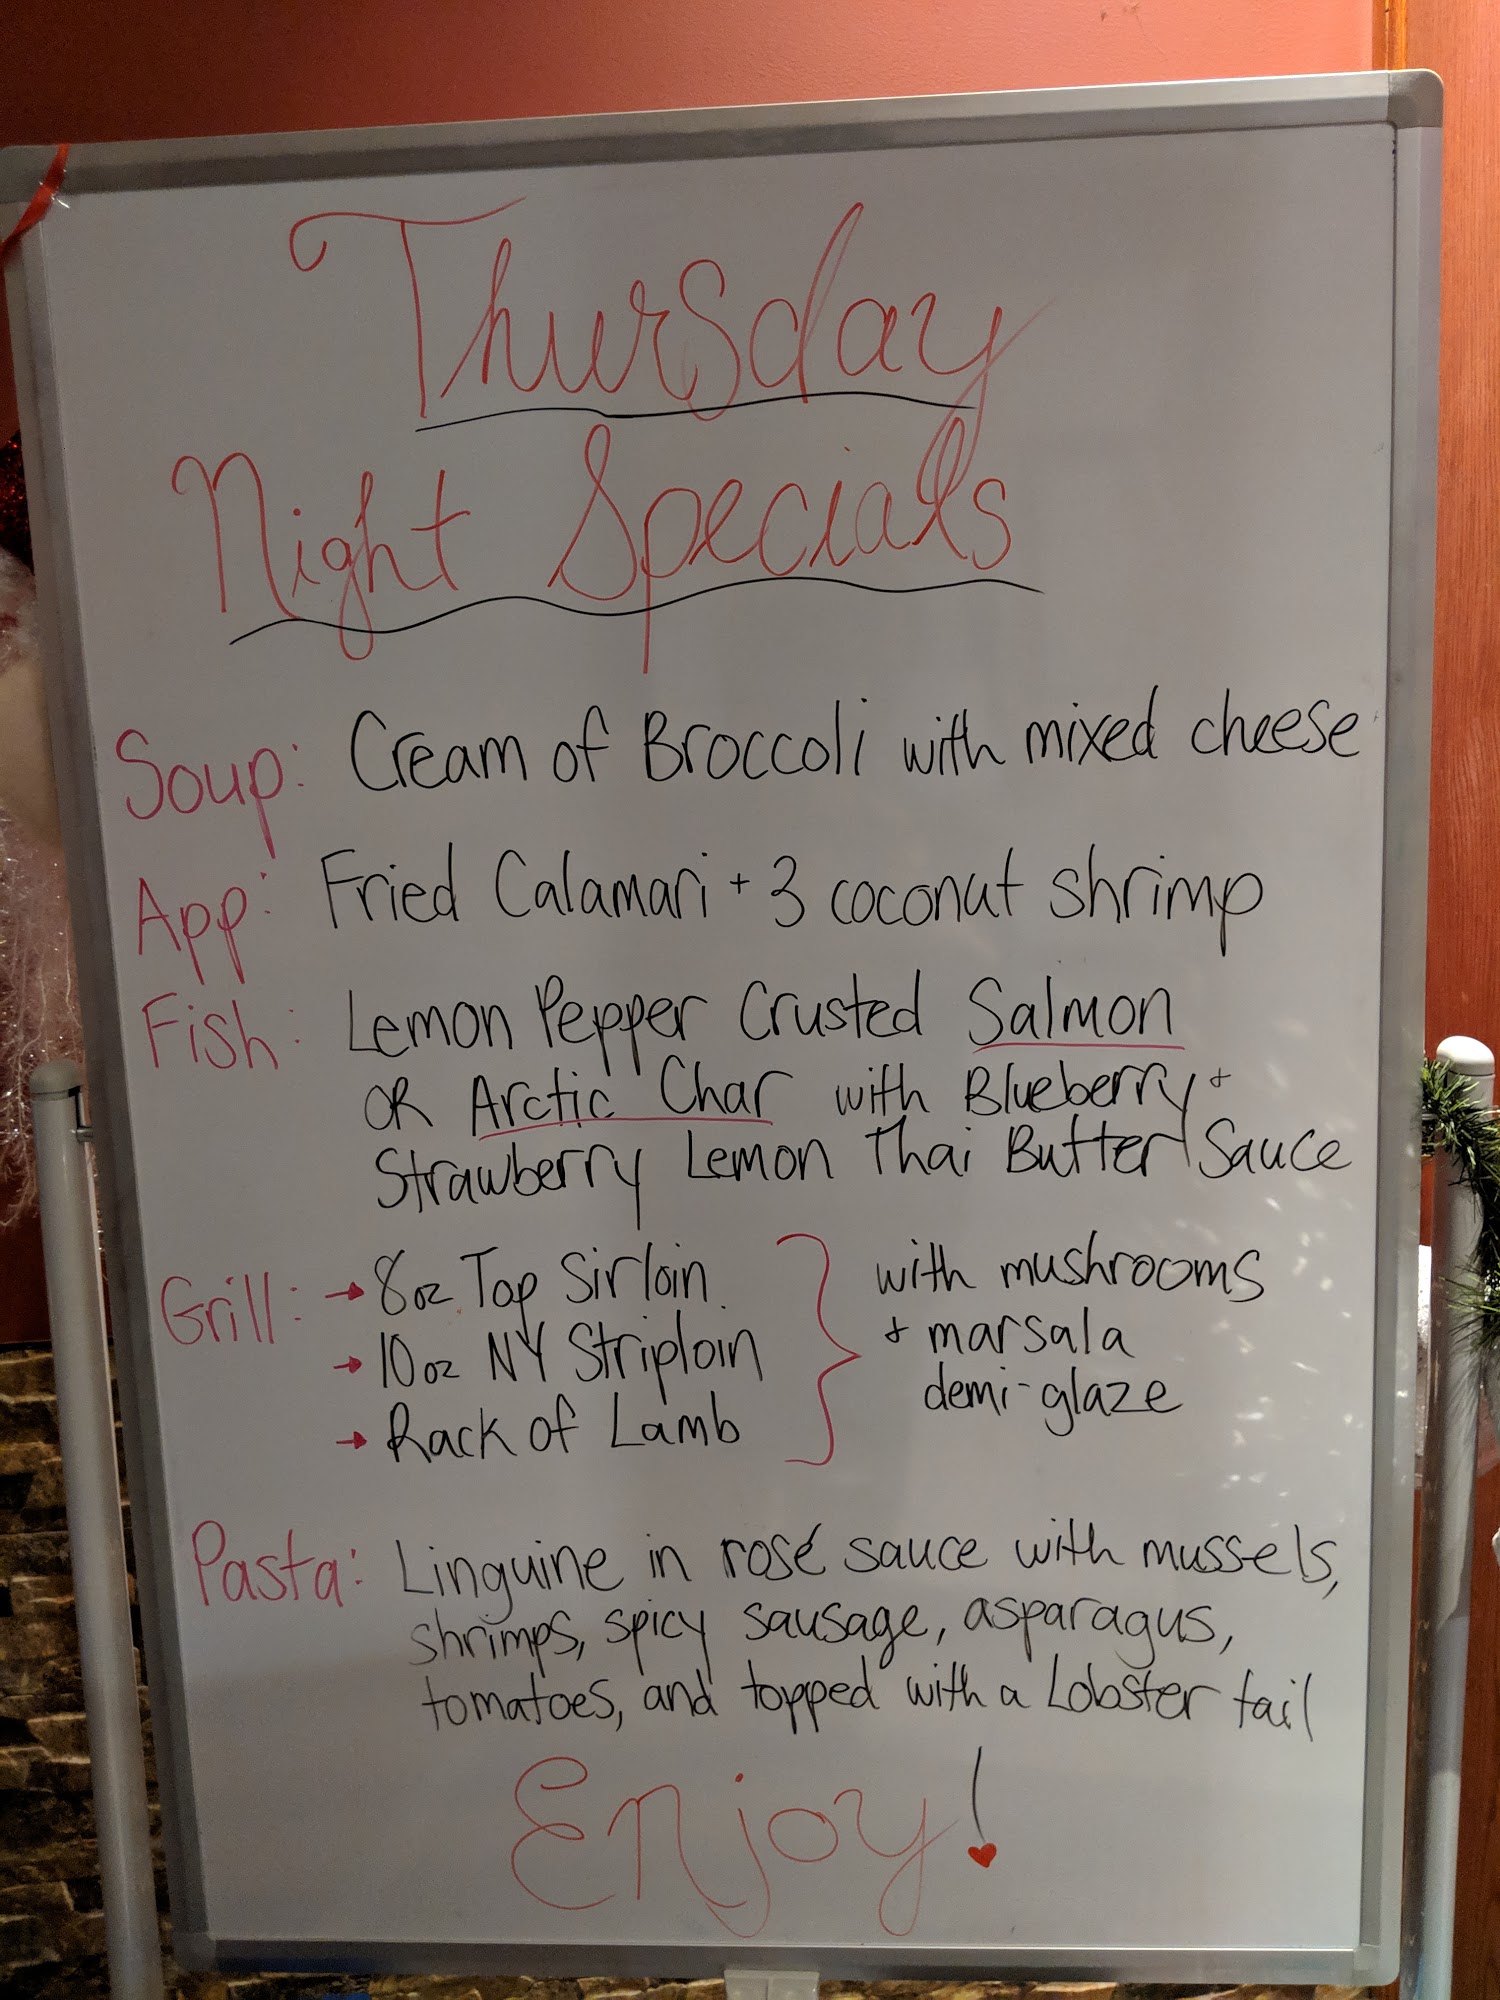 Thursday
Night Specials
Soup: Cream of Broccoli with mixed cheese
App: Fried Calamari + 3 coconut shrimp
Fish: Lemon Pepper Crusted Salmon
OR Arctic Char with Blueberry +
Strawberry Lemon Thai Butter Sauce
Grill: → 8oz Top Sirloin
→ 10oz NY Striploin
→ Rack of Lamb
with mushrooms
+ marsala
demi-glaze
Pasta: Linguine in rosé sauce with mussels,
shrimps, spicy sausage, asparagus,
tomatoes, and topped with a Lobster tail
Enjoy!